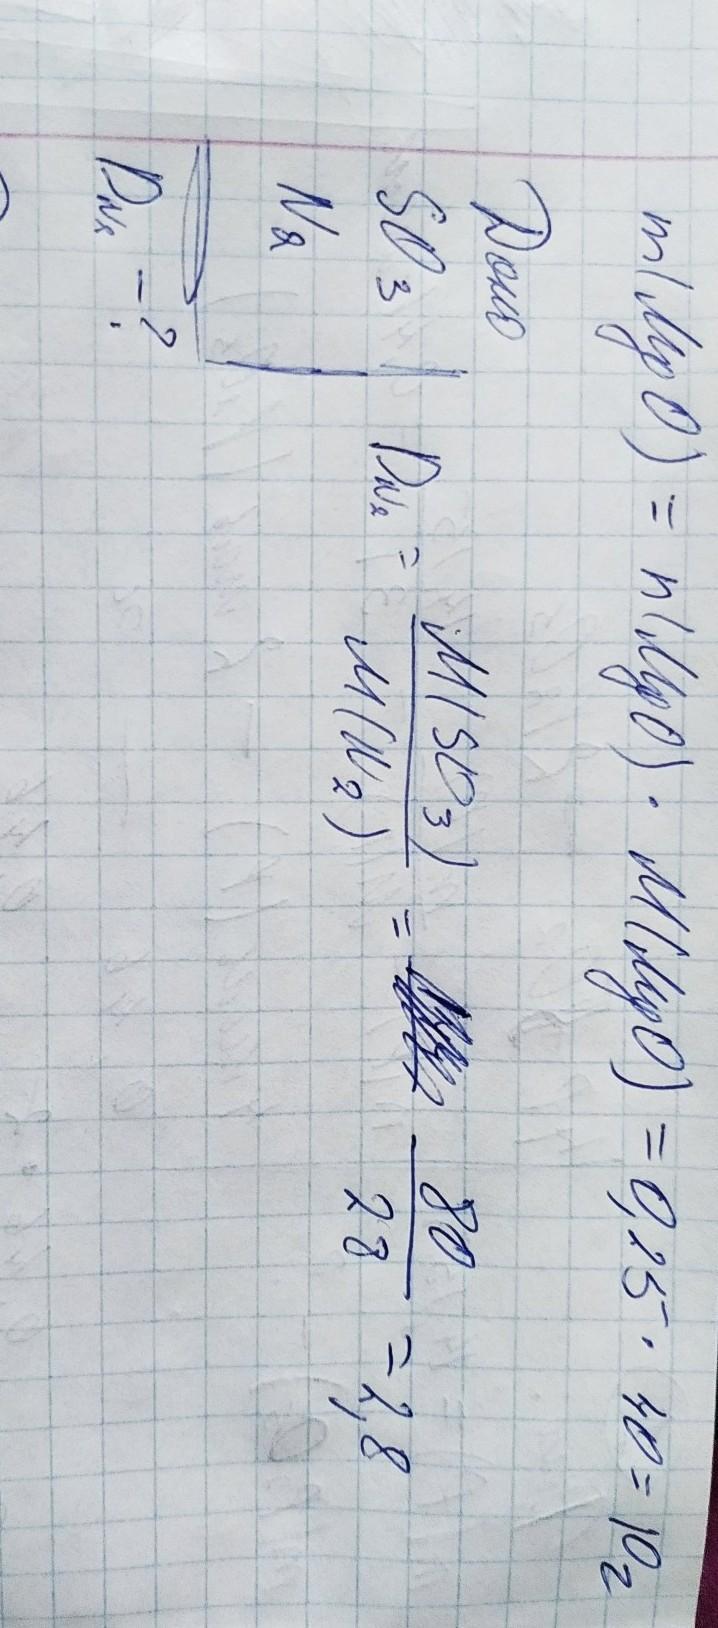 m(MgO) = n(MgO) · M(MgO) = 0,25 · 40 = 10 г
Дано
SO₃
N₂
D_N₂ - ?
D_N₂ = M(SO₃) / M(N₂) = 80 / 28 = 2,8